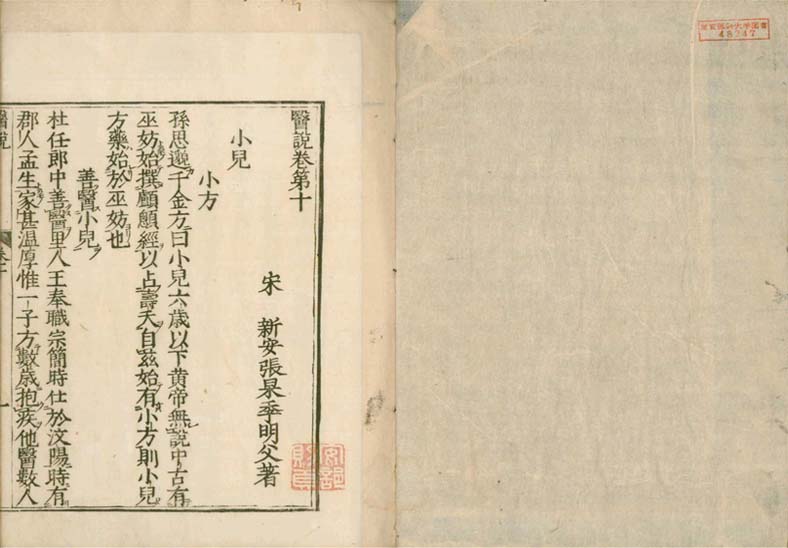 48247
醫說卷第十
宋 新安張杲季明父著
小兒
小方
孫思邈千金方曰小兒六歲以下黃帝無說中古有
巫妨始撰顱顖經以占壽夭自茲始有小方則小兒
方藥始於巫妨也
善醫小兒
杜任郎中善醫里人王奉職宗簡時仕於汶陽時有
郡人孟生家甚溫厚惟一子方數歲抱疾他醫數人